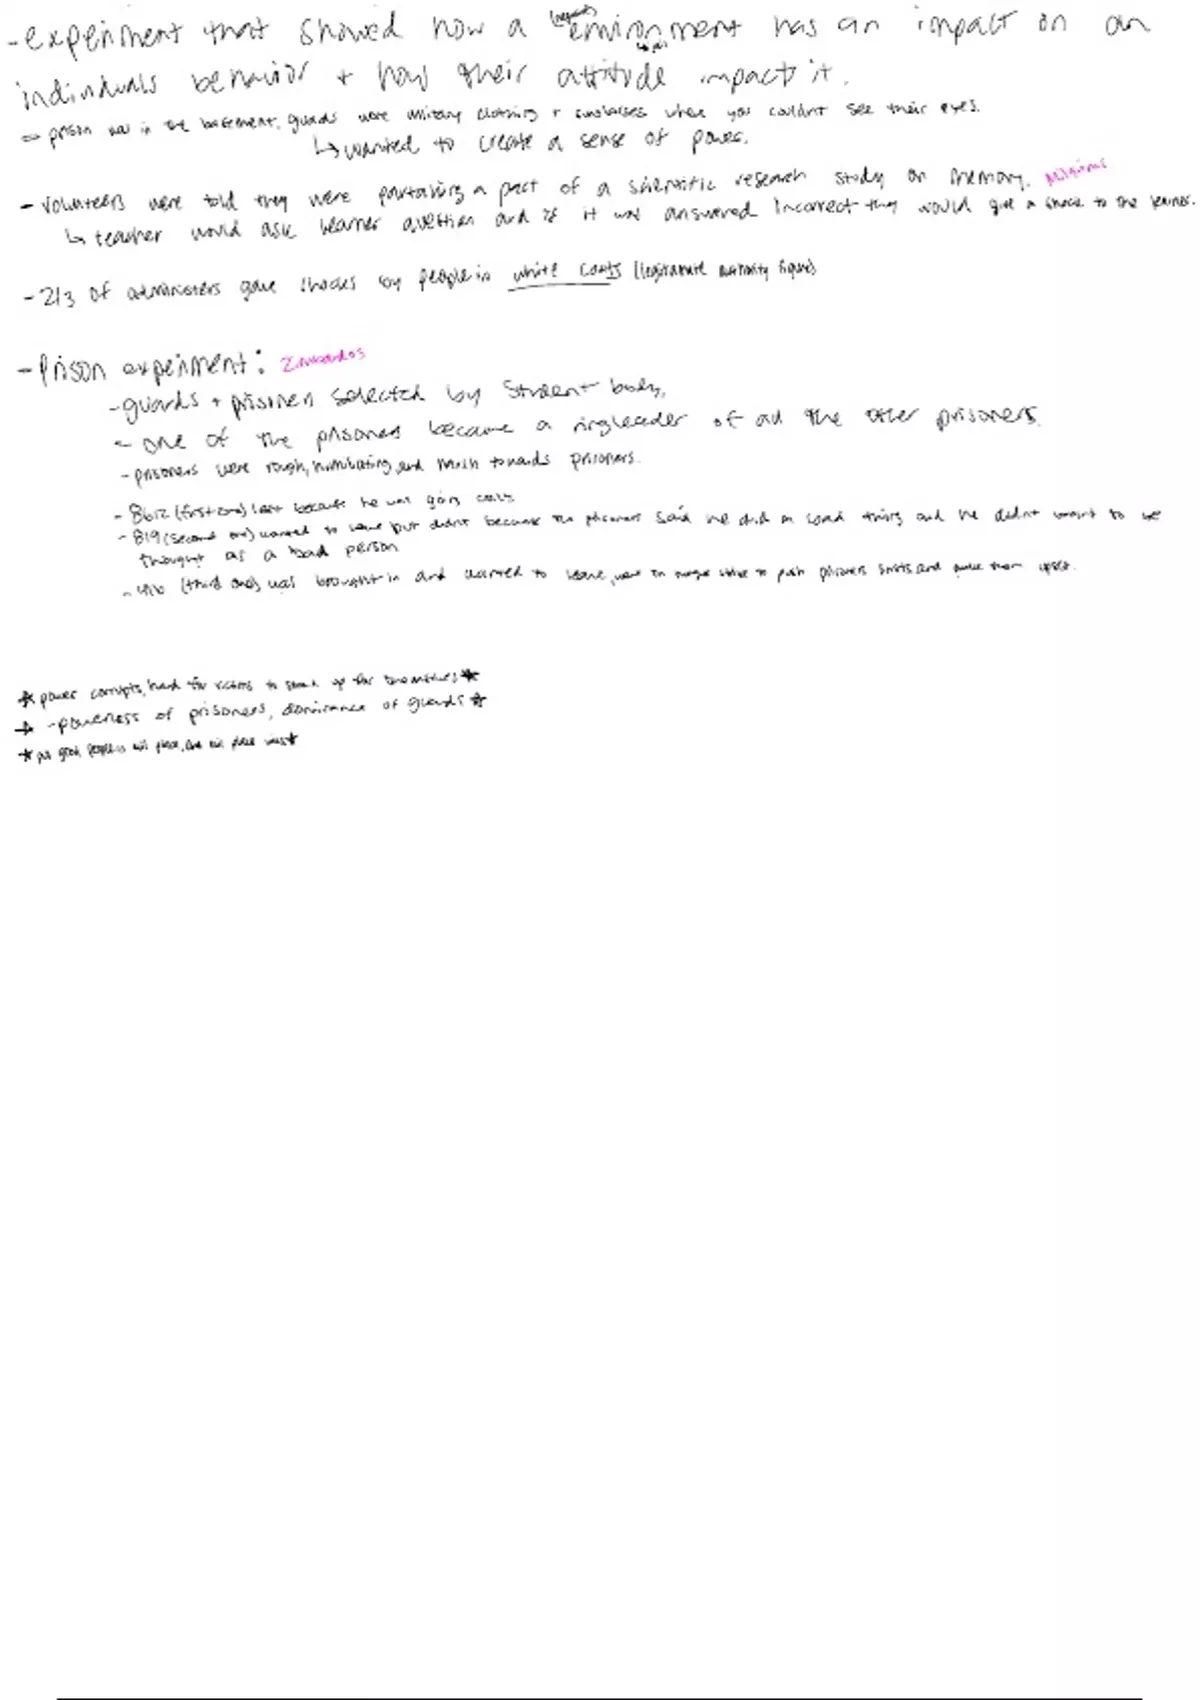 - experiment that showed how a environment has an impact on an
individuals behavior + how their attitude impact it.
prison was in the basement. guards wore military clothing + sunglasses where you couldnt see their eyes.
↳ wanted to create a sense of power.
- volunteers were told they were partaking a part of a scientific research study on memory. Milgrams
↳ teacher would ask learner question and if it was answered incorrect they would give a shock to the learner.
- 2/3 of administers gave shocks by people in white coats (legitamate authority figure)
- Prison experiment: Zimbardos
- guards + prisoners selected by student body.
- one of the prisoners became a ringleader of all the other prisoners.
- prisoners were rough, humiliating, and harsh towards prisoners.
- 8612 (first one) left because he was going crazy
- 819 (second one) wanted to leave but didnt because the prisoners said he did a bad thing and he didnt want to be
thought as a bad person
- 416 (third one) was brought in and wanted to leave, went on hunger strike to push prisoners limits and make them upset.
★ power corrupts, hard for victims to speak up for themselves ★
- powerless of prisoners, dominance of guards ★
★ put good people in evil place, the evil place wins ★